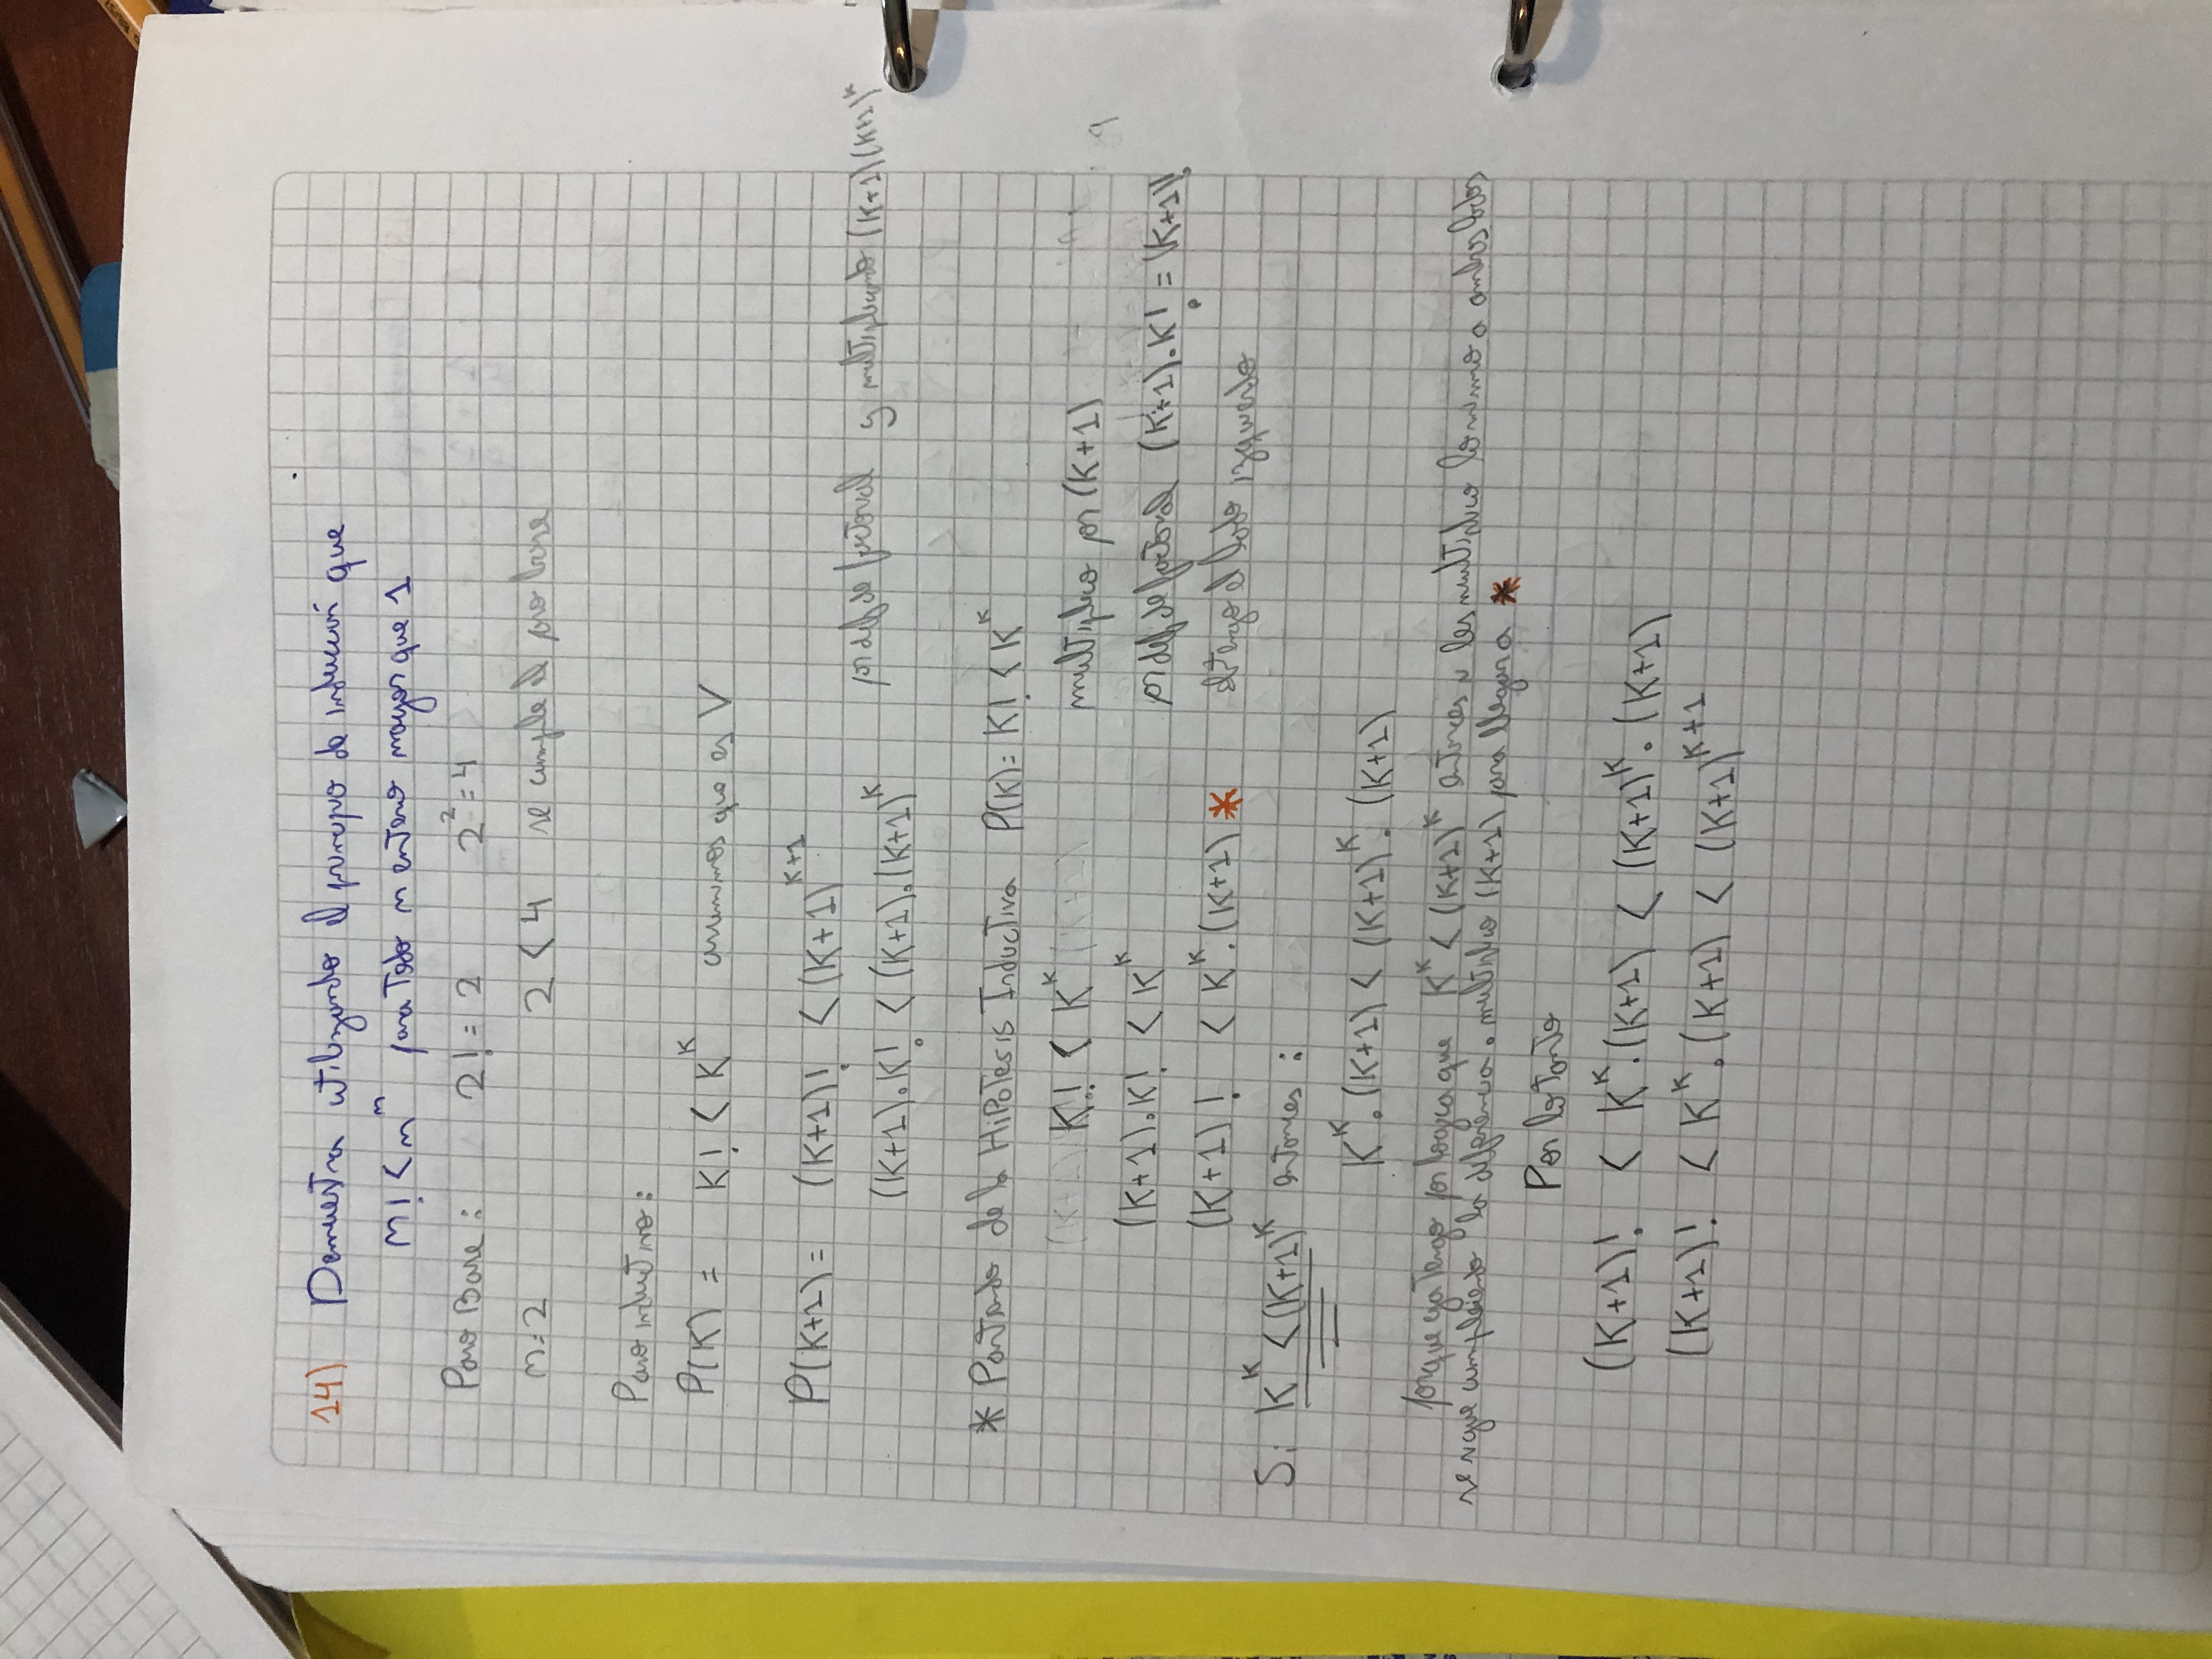 14) Demuestra utilizando el principio de inducción que
n! < n^n para todo n entero mayor que 1
Paso Base: 2! = 2 2^2 = 4
n=2 2 < 4 se cumple el paso base
Paso inductivo:
P(K) = K! < K^K asumimos que es V
P(K+1) = (K+1)! < (K+1)^{K+1}
(K+1).K! < (K+1).(K+1)^K por def de factorial y multiplicando (K+1)(K+1)^K
* Partiendo de la Hipotesis Inductiva P(K)= K! < K^K
K! < K^K multiplico por (K+1)
(K+1).K! < K^K por def de factorial (K+1).K! = (K+1)!
(K+1)! < K^K.(K+1) * obtengo el lado izquierdo
Si K^K < (K+1)^K entonces:
K^K.(K+1) < (K+1)^K.(K+1)
porque ya tengo por logica que K^K < (K+1)^K entonces si les multiplico lo mismo a ambos lados
se sigue cumpliendo la diferencia. multiplico (K+1) para llegar a *
Por lo tanto
(K+1)! < K^K.(K+1) < (K+1)^K.(K+1)
(K+1)! < K^K.(K+1) < (K+1)^{K+1}